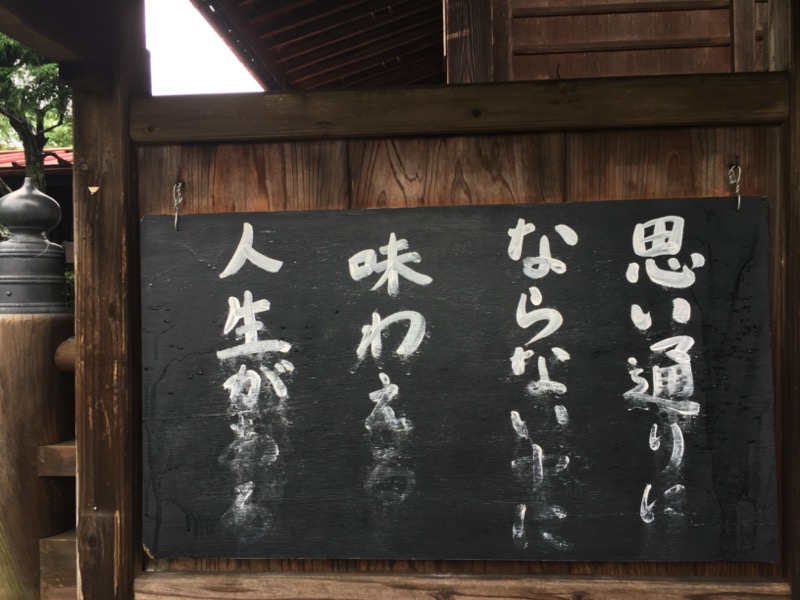 思い通りに
ならないから
味わえる
人生がある